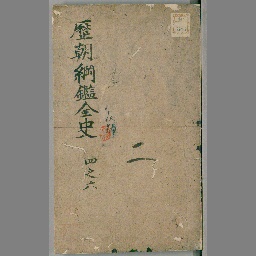 歷朝綱鑑全史
四之六
二